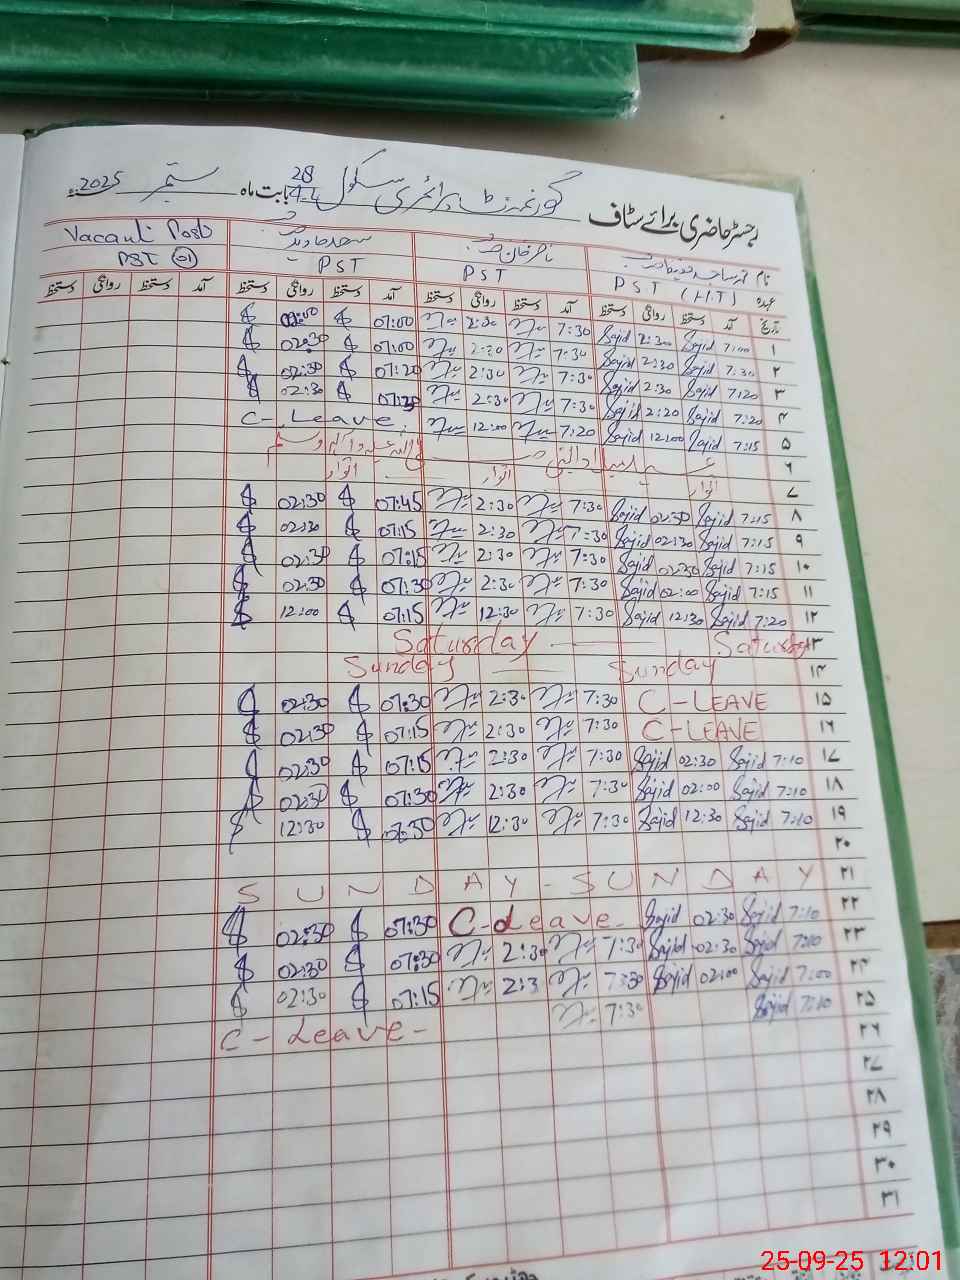 رجسٹر حاضری برائے سٹاف گورنمنٹ پرائمری سکول 28/4-L بابت ماہ ستمبر 2025
نام
Vacant Post
عہدہ PST (H.T) PST PST PST 01
تاریخ آمد دستخط روانگی دستخط آمد دستخط روانگی دستخط آمد دستخط روانگی دستخط آمد دستخط روانگی دستخط
۱ 7:00 Sajid 2:30 Sajid 7:30 2:30 07:00
۲ 7:30 Sajid 2:30 Sajid 7:30 2:30 07:00 02:30
۳ 7:20 Sajid 2:30 Sajid 7:30 2:30 07:20 02:30
۴ 7:20 Sajid 2:20 Sajid 7:30 2:30 02:30
۵ 7:15 Sajid 12:00 Sajid 7:20 12:00 C-Leave
۶ عید میلاد النبی صلی اللہ علیہ وآلہ وسلم
۷ اتوار اتوار اتوار
۸ 7:15 Sajid 02:30 Sajid 7:30 2:30 07:45 $ 02:30 $
۹ 7:15 Sajid 02:30 Sajid 7:30 2:30 07:15 $ 02:30 $
۱۰ 7:15 Sajid 02:30 Sajid 7:30 2:30 07:15 $ 02:30 $
۱۱ 7:15 Sajid 02:00 Sajid 7:30 2:30 07:30 $ 02:30 $
۱۲ 7:20 Sajid 12:30 Sajid 7:30 12:30 07:15 $ 12:00 $
۱۳ Saturday Saturday
۱۴ Sunday Sunday
۱۵ C-LEAVE 7:30 2:30 07:30 $ 02:30 $
۱۶ C-LEAVE 7:30 2:30 07:15 $ 02:30 $
۱۷ 7:10 Sajid 02:30 Sajid 7:30 2:30 07:15 $ 02:30 $
۱۸ 7:10 Sajid 02:00 Sajid 7:30 2:30 07:30 $ 02:30 $
۱۹ 7:10 Sajid 12:30 Sajid 7:30 12:30 $ 12:30 $
۲۰
۲۱ SUNDAY-SUNDAY
۲۲ 7:10 Sajid 02:30 Sajid C-Leave- 07:30 $ 02:30 $
۲۳ 7:10 Sajid 02:30 Sajid 7:30 2:30 07:30 $ 02:30 $
۲۴ 7:00 Sajid 02:00 Sajid 7:30 2:3 07:15 $ 02:30 $
۲۵ 7:10 Sajid 7:30 C-Leave-
۲۶
۲۷
۲۸
۲۹
۳۰
۳۱
25-09-25 12:01